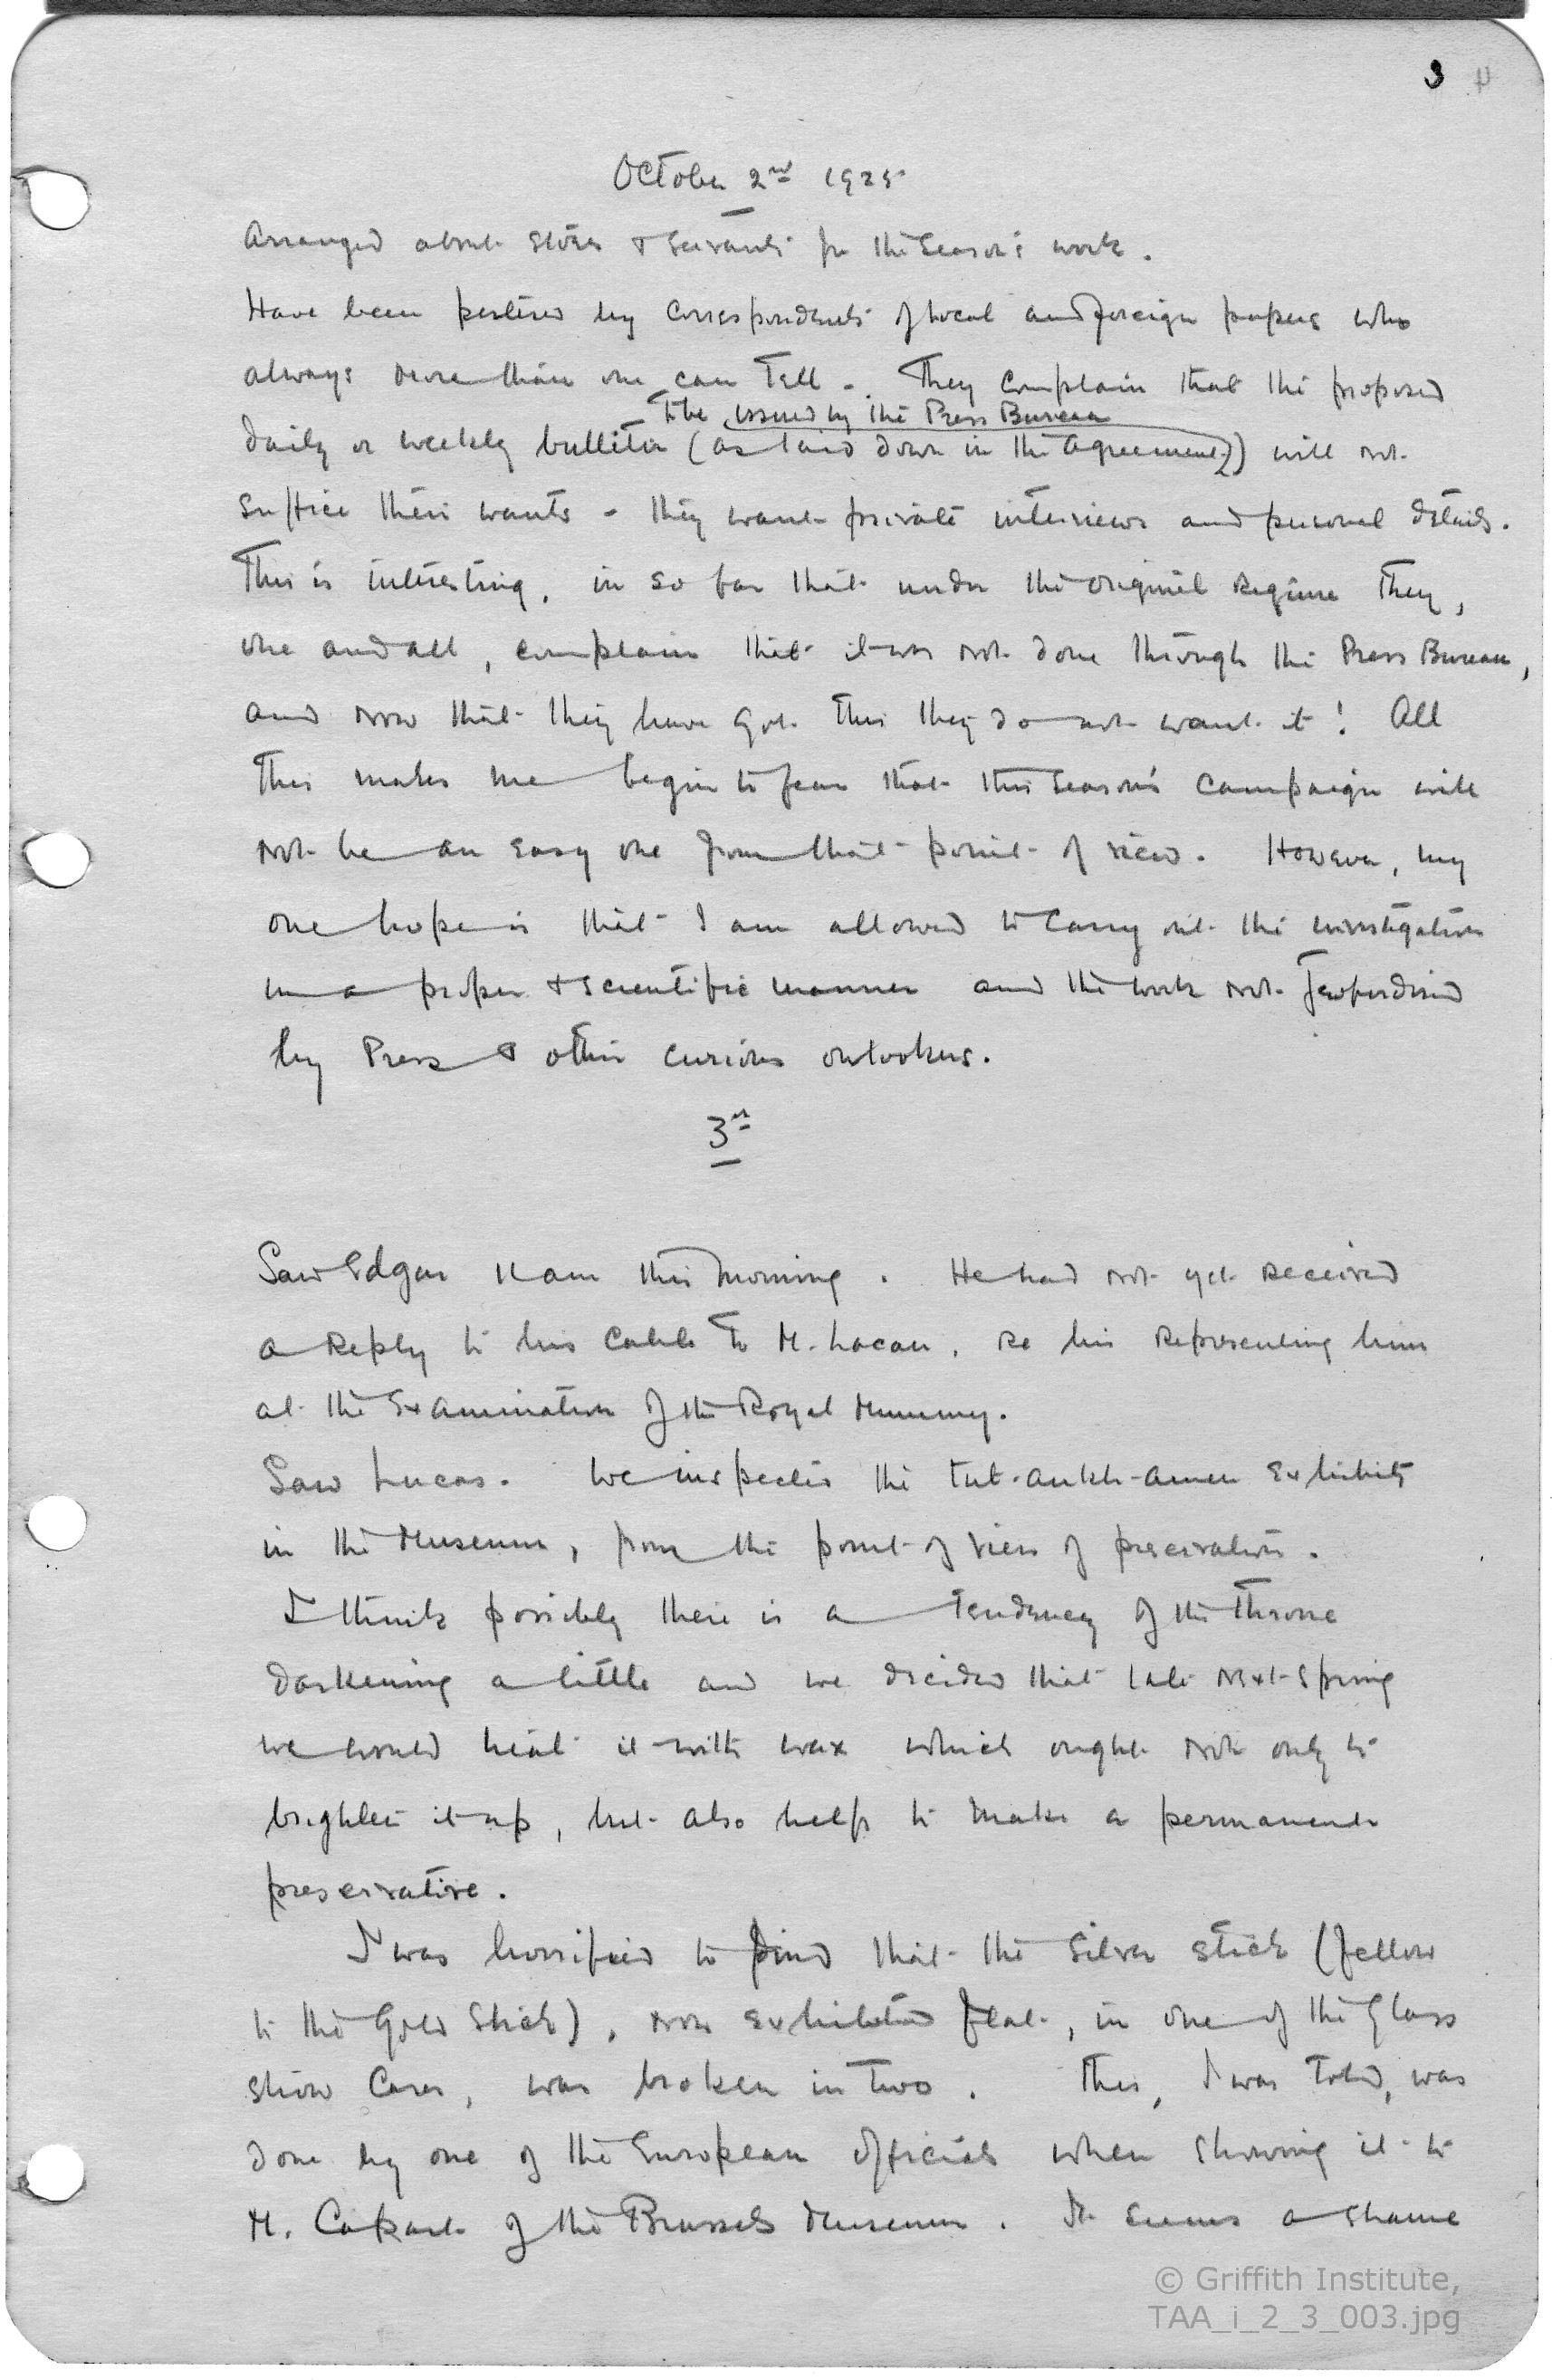 3
October 2nd 1925
Arranged about stores & servants for the season's work.
Have been pestered by correspondents of local and foreign papers who
always more than one can tell. They complain that the proposed
to be issued by the Press Bureau
daily or weekly bulletin (as laid down in the agreement) will not
suffice their wants - they want private interviews and personal details.
This is interesting, in so far that under the original regime they,
one and all, complain that it was not done through the Press Bureau,
and now that they have got this they do not want it! All
this makes me begin to fear that this season's campaign will
not be an easy one from that point of view. However, my
one hope is that I am allowed to carry out the investigation
in a proper & scientific manner and the work not jeopardised
by Press & other curious onlookers.
3rd
Saw Edgar 11 am this morning. He had not yet received
a reply to his cable to M. Lacau, re his representing him
at the examination of the Royal Mummy.
Saw Lucas. We inspected the Tut-ankh-amen exhibits
in the Museum, from the point of view of preservation.
I think possibly there is a tendency of the Throne
darkening a little and we decided that late next spring
we would heat it with wax which ought not only to
brighten it up, but also help to make a permanent
preservative.
I was horrified to find that the silver stick (fellow
to the gold stick), now exhibited flat, in one of the glass
show cases, was broken in two. This, I was told, was
done by one of the European officials when showing it to
M. Capart of the Brussels Museum. It seems a shame
© Griffith Institute,
TAA_i_2_3_003.jpg